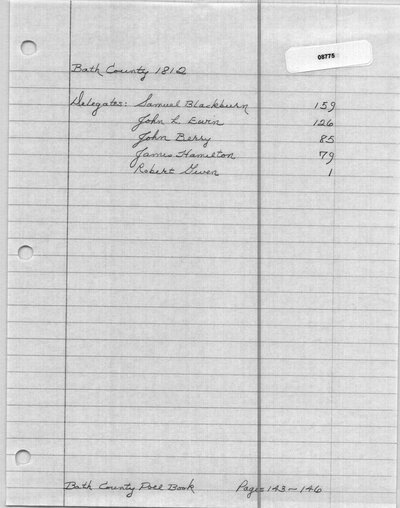 08775
Bath County 1812
Delegates: Samuel Blackburn 159
John L. Ewin 126
John Berry 85
James Hamilton 79
Robert Given 1
Bath County Poll Book Pages 143-146